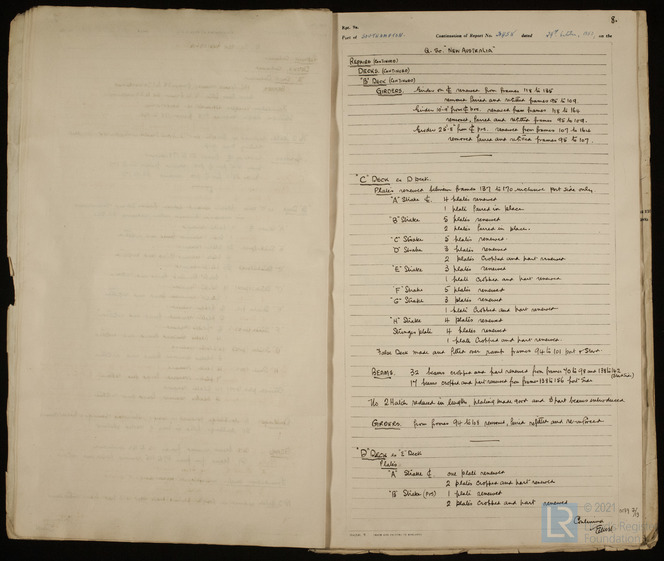 8.
Rpt. 9a.
Port of SOUTHAMPTON Continuation of Report No. dated on the
"NEW AUSTRALIA"
REPAIRS (CONTINUED)
DECKS (CONTINUED)
"B" DECK (CONTINUED)
GIRDERS. Girder on renewed from frames 118 to 185
removed faired and refitted frames 95 to 109
Girder from renewed from frames 108 to 164
removed, faired and refitted frames 95 to 109.
Girder from renewed from frames 107 to 164
removed faired and refitted frames 95 to 107.
"C" DECK is D Deck.
Plates renewed between frames 137 to 170 inclusive port side only.
"A" Strake 4 plates renewed
1 plate faired in place
"B" Strake 5 plates renewed
2 plates faired in place.
"C" Strake 5 plates renewed.
"D" Strake 3 plates renewed
2 plates cropped and part renewed
"E" Strake 3 plates renewed
1 plate cropped and part renewed
"F" Strake 5 plates renewed
"G" Strake 3 plates renewed
1 plate cropped and part renewed
"H" Strake 4 plates renewed
Stringer plate 4 plates renewed
1 plate cropped and part renewed.
False Deck made and fitted over ramp frames 94 to 101 port & Star.
BEAMS. 32 beams cropped and part renewed from frames 70 to 98 and 138 to 162
17 beams cropped and part renewed from frames 138 to 186 port side
No 2 Hatch reduced in length, plating made good and 8 part beams introduced.
GIRDERS. from frames 94 to 108 removed, faired refitted and re-inforced
"D" DECK is "E" Deck
Plates.
"A" Strake one plate renewed
2 plates cropped and part renewed
"B" Strake (P&S) 1 plate renewed
2 plates cropped and part renewed
© 2021
LR
Lloyd's Register
Foundation